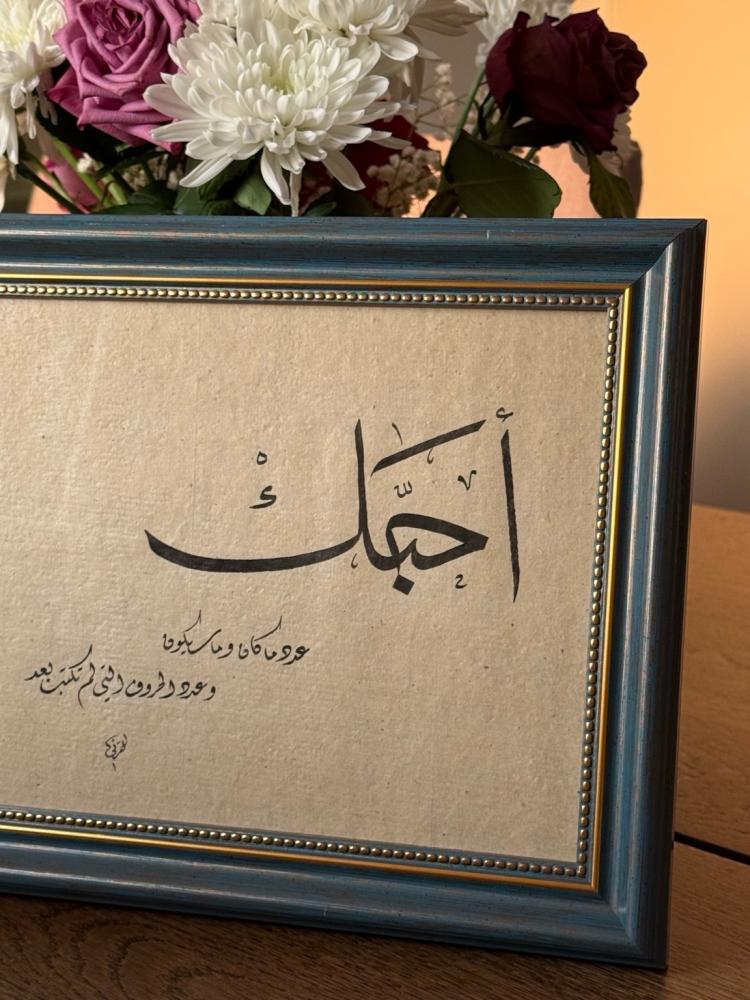 أحبّكْ
عدد ما كان وما سيكون
وعدد الحروف التي لم تكتب بعد